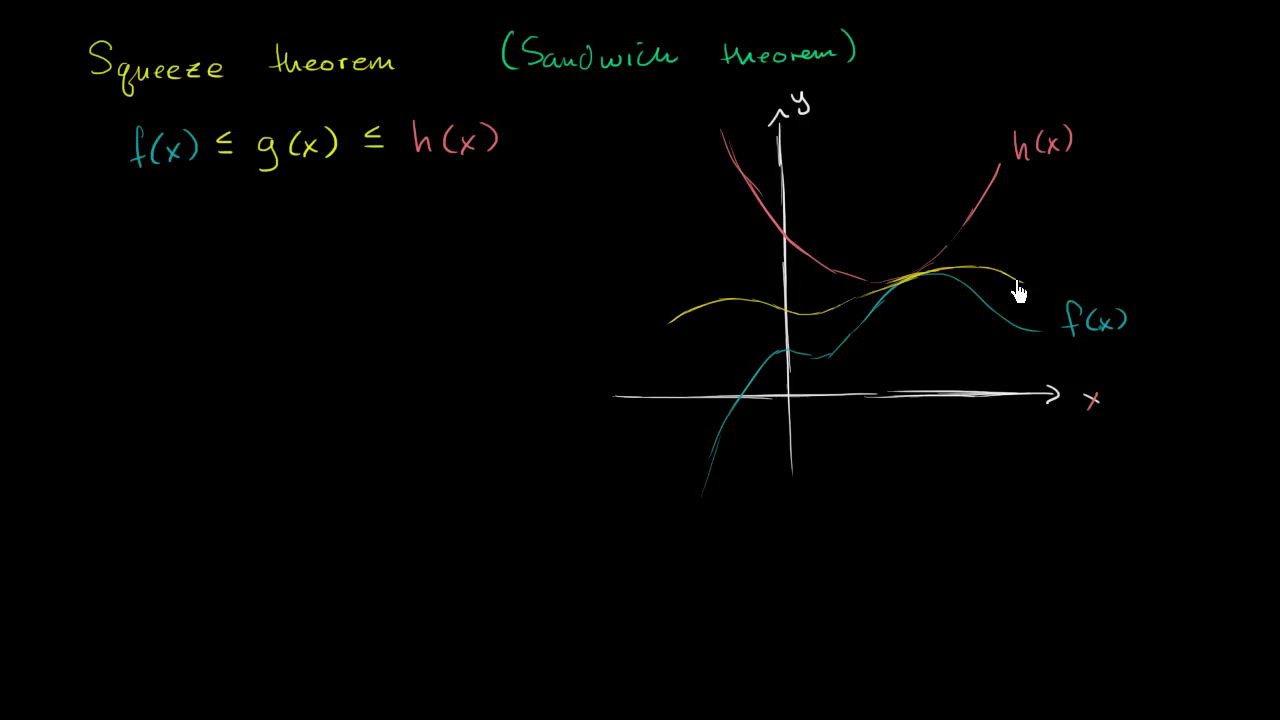 Squeeze theorem (Sandwich theorem)
f(x) ≤ g(x) ≤ h(x)
y
h(x)
f(x)
x